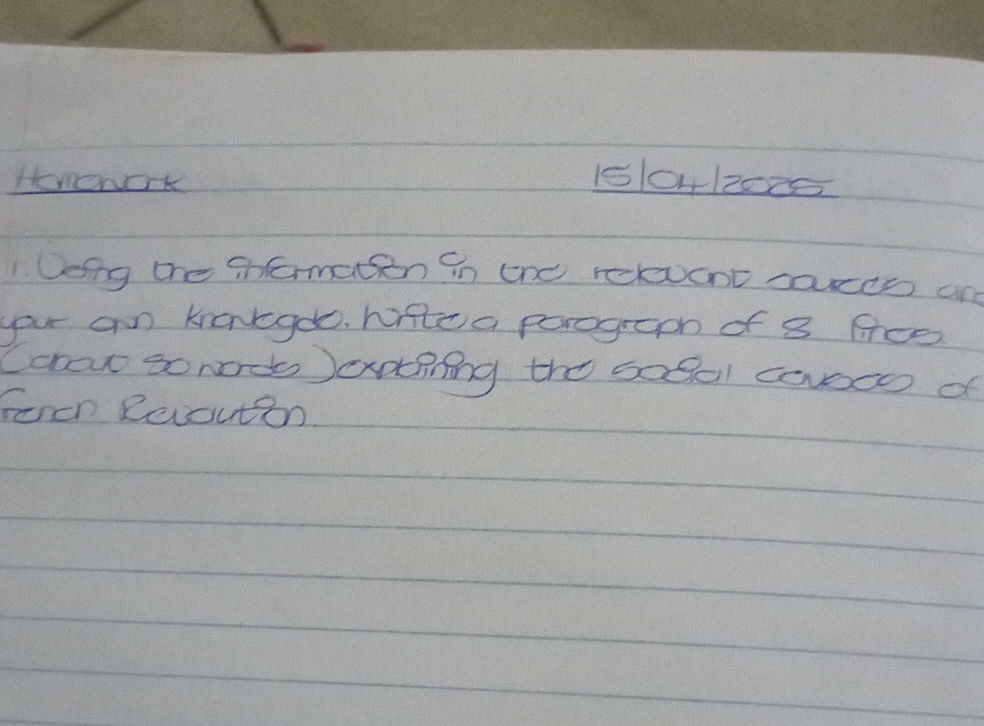 Homework 15/04/2025
1. Using the information in the relevant sources and
your own knowlegde. Write a paragraph of 8 lines
(about 80 words) explaining the social causes of
French Revolution.